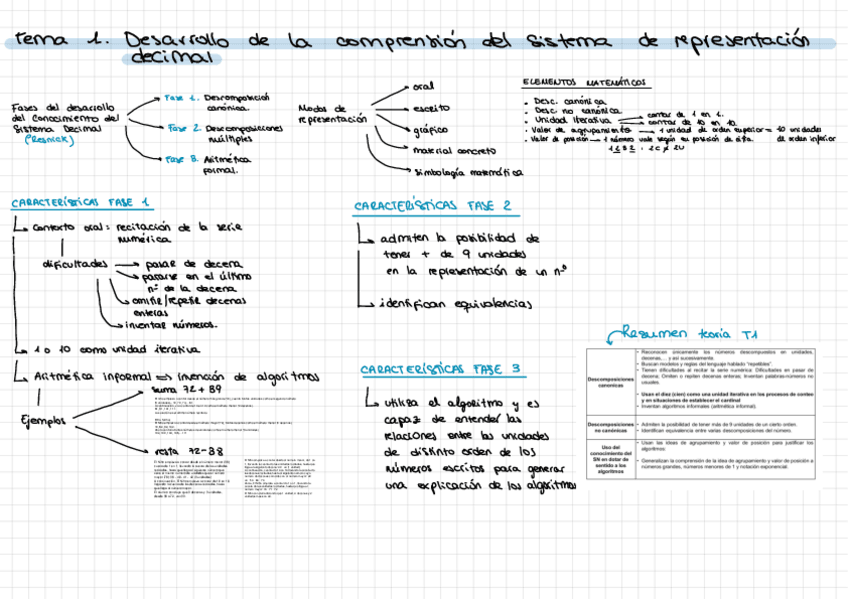 Tema 1. Desarrollo de la comprensión del sistema de representación
decimal
Fases del desarrollo
del conocimiento del
Sistema Decimal
(Resnick)
Fase 1. Descomposición
canónica.
Fase 2. Descomposiciones
múltiples
Fase 3. Aritmética
formal.
Modos de
representación
oral
escrito
gráfico
material concreto
simbología matemática
ELEMENTOS MATEMÁTICOS
• Desc. canónica
• Desc. no canónica
• Unidad iterativa
contar de 1 en 1.
contar de 10 en 10.
• Valor de agrupamiento → 1 unidad de orden superior = 10 unidades
de orden inferior
• Valor de posición → 1 número vale según su posición de cifra.
CARACTERÍSTICAS FASE 1
Contexto oral: recitación de la serie
numérica
dificultades
pasar de decena
pararse en el último
nº de la decena
omitir/repetir decenas
enteras
inventar números.
1 o 10 como unidad iterativa
Aritmética informal ⇒ invención de algoritmos
Ejemplos
suma 72 + 89
resta 72-38
CARACTERÍSTICAS FASE 2
admiten la posibilidad de
tener + de 9 unidades
en la representación de un nº
identifican equivalencias
CARACTERÍSTICAS FASE 3
utiliza el algoritmo y es
capaz de entender las
relaciones entre las unidades
de distinto orden de los
números escritos para generar
una explicación de los algoritmos
Resumen teoría T1
Descomposiciones
canonicas
• Reconocen únicamente los números descompuestos en unidades,
decenas,... y así sucesivamente.
• Buscan modelos y reglas del lenguaje hablado "repetibles".
• Tienen dificultades al recitar la serie numérica: Dificultades en pasar de
decena; Omiten o repiten decenas enteras; Inventan palabras-números no
usuales.
• Usan el diez (cien) como una unidad iterativa en los procesos de conteo
y en situaciones de establecer el cardinal
• Inventan algoritmos informales (aritmética informal).
Descomposiciones
no canónicas
• Admiten la posiblidad de tener más de 9 unidades de un cierto orden.
• Identifican equivalencia entre varias descomposiciones del número.
Uso del
conocimiento del
SN en dotar de
sentido a los
algoritmos
• Usan las ideas de agrupamiento y valor de posición para justificar los
algoritmos:
• Generalizan la comprensión de la idea de agrupamiento y valor de posición a
números grandes, números menores de 1 y notación exponencial.